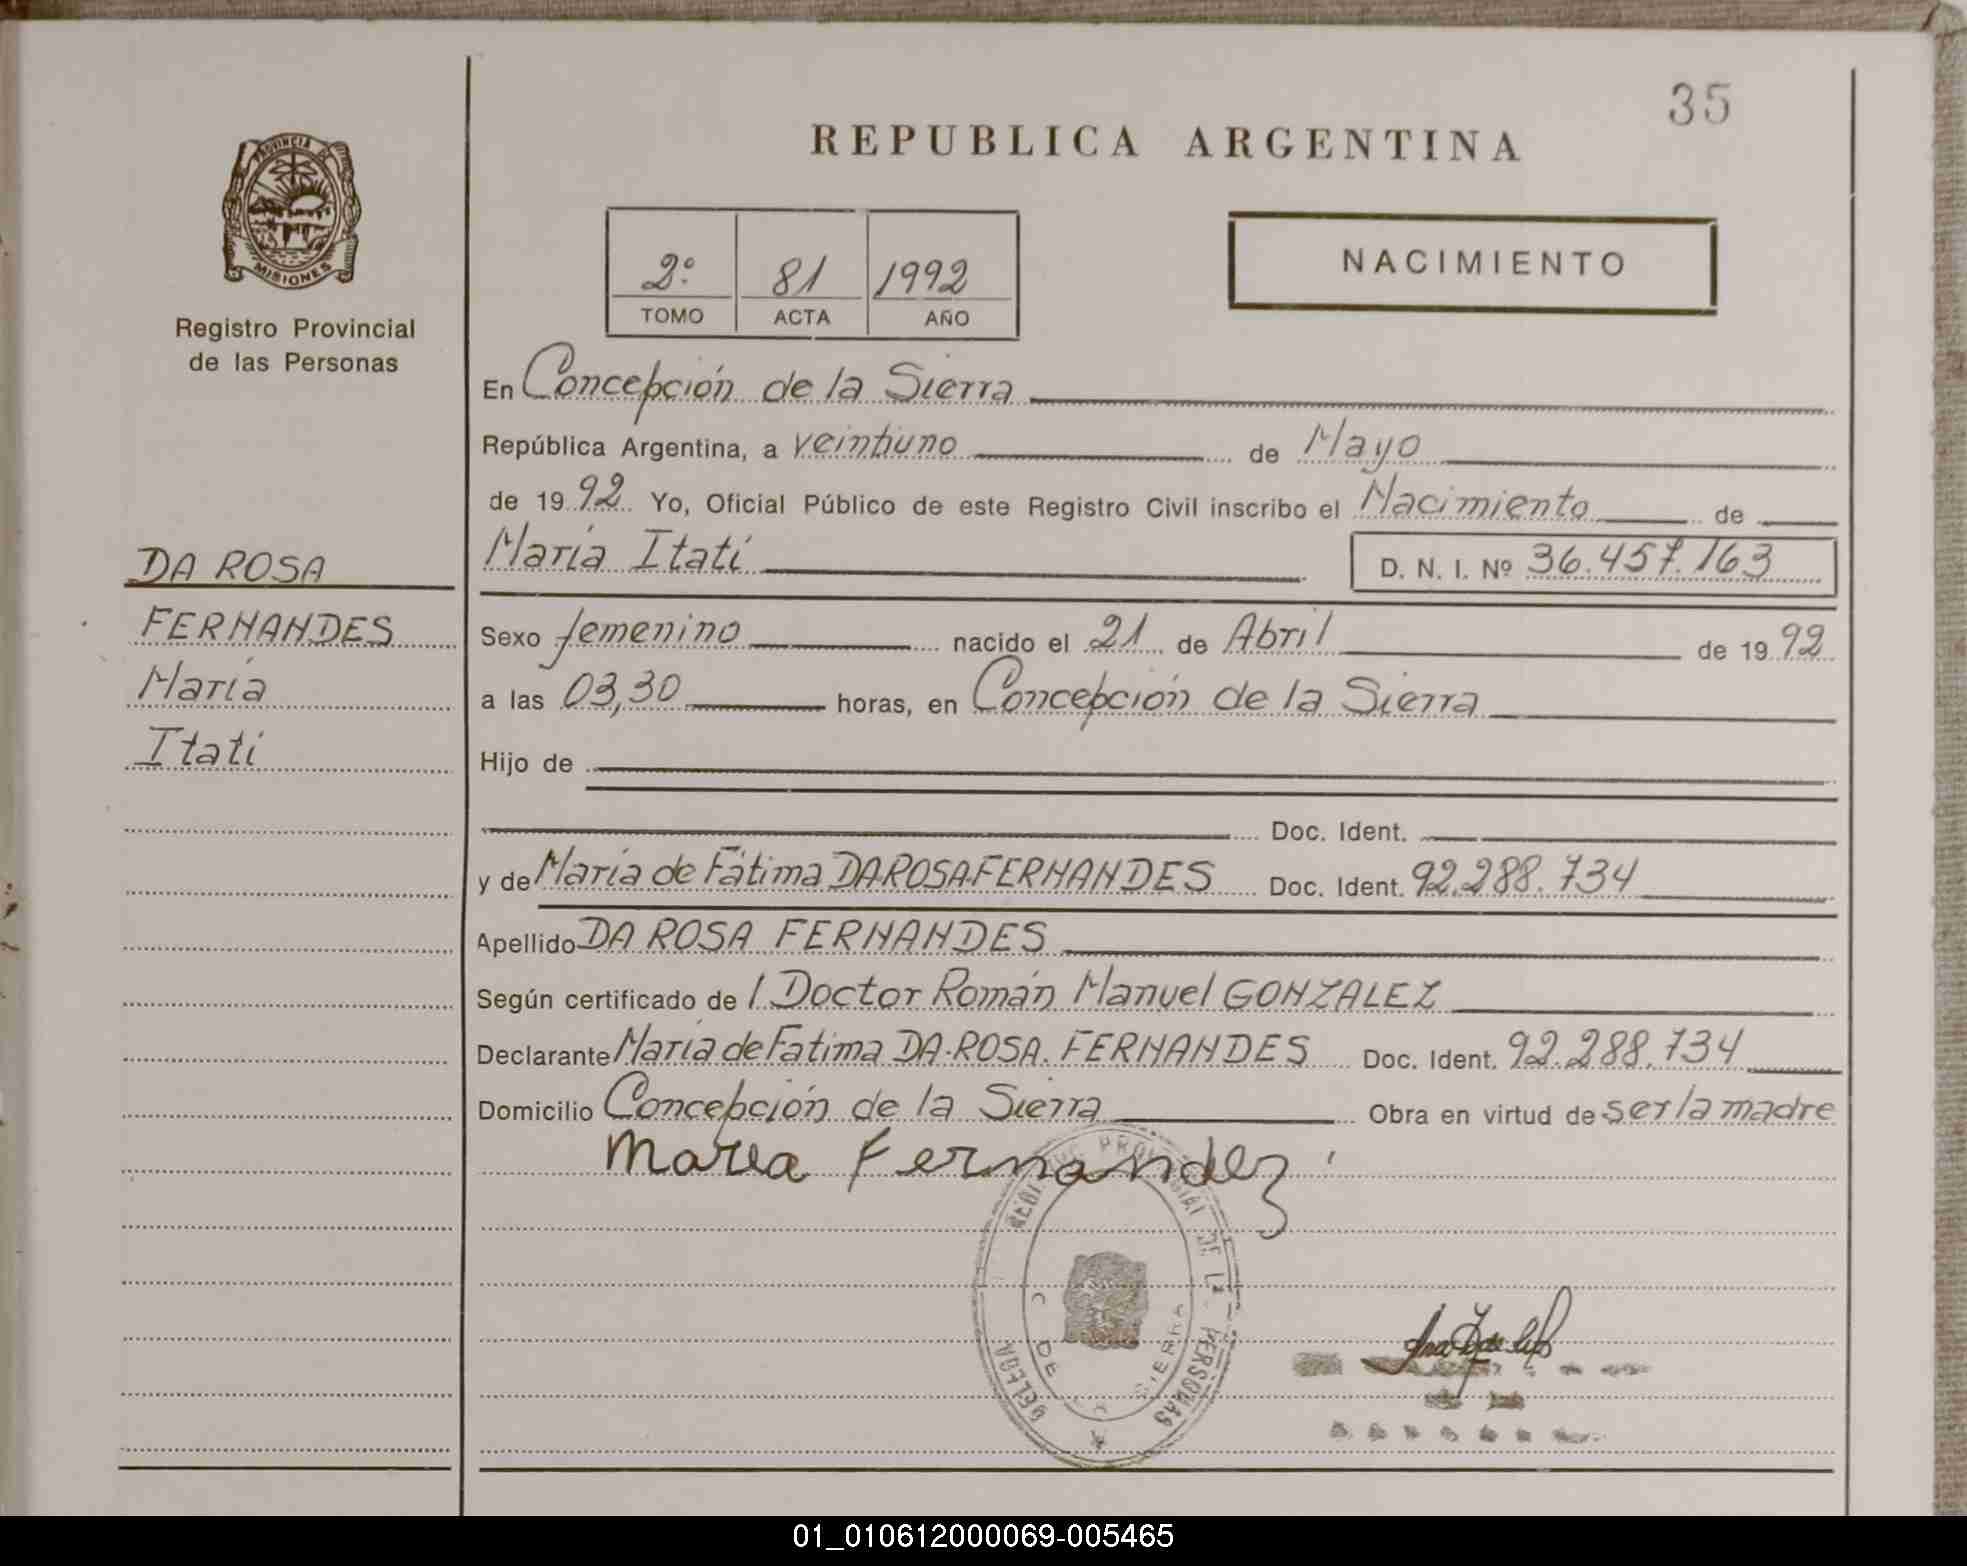 35
REPUBLICA ARGENTINA
PROVINCIA DE
MISIONES
Registro Provincial
de las Personas
2º 81 1992
TOMO ACTA AÑO
NACIMIENTO
En Concepción de la Sierra
República Argentina, a veintiuno de Mayo
de 1992 Yo, Oficial Público de este Registro Civil inscribo el Nacimiento de
María Itatí D. N. I. Nº 36.457.163
DA ROSA
FERNANDES
María
Itatí
Sexo femenino nacido el 21 de Abril de 1992
a las 03,30 horas, en Concepción de la Sierra
Hijo de
Doc. Ident.
y de María de Fátima DA ROSA FERNANDES Doc. Ident. 92.288.734
Apellido DA ROSA FERNANDES
Según certificado de l Doctor Román Manuel GONZALEZ
Declarante María de Fatima DA ROSA FERNANDES Doc. Ident. 92.288.734
Domicilio Concepción de la Sierra Obra en virtud de ser la madre
Maria Fernandez
PROVINCIAL DE LAS PERSONAS
C DE LA SIERRA
01_010612000069-005465